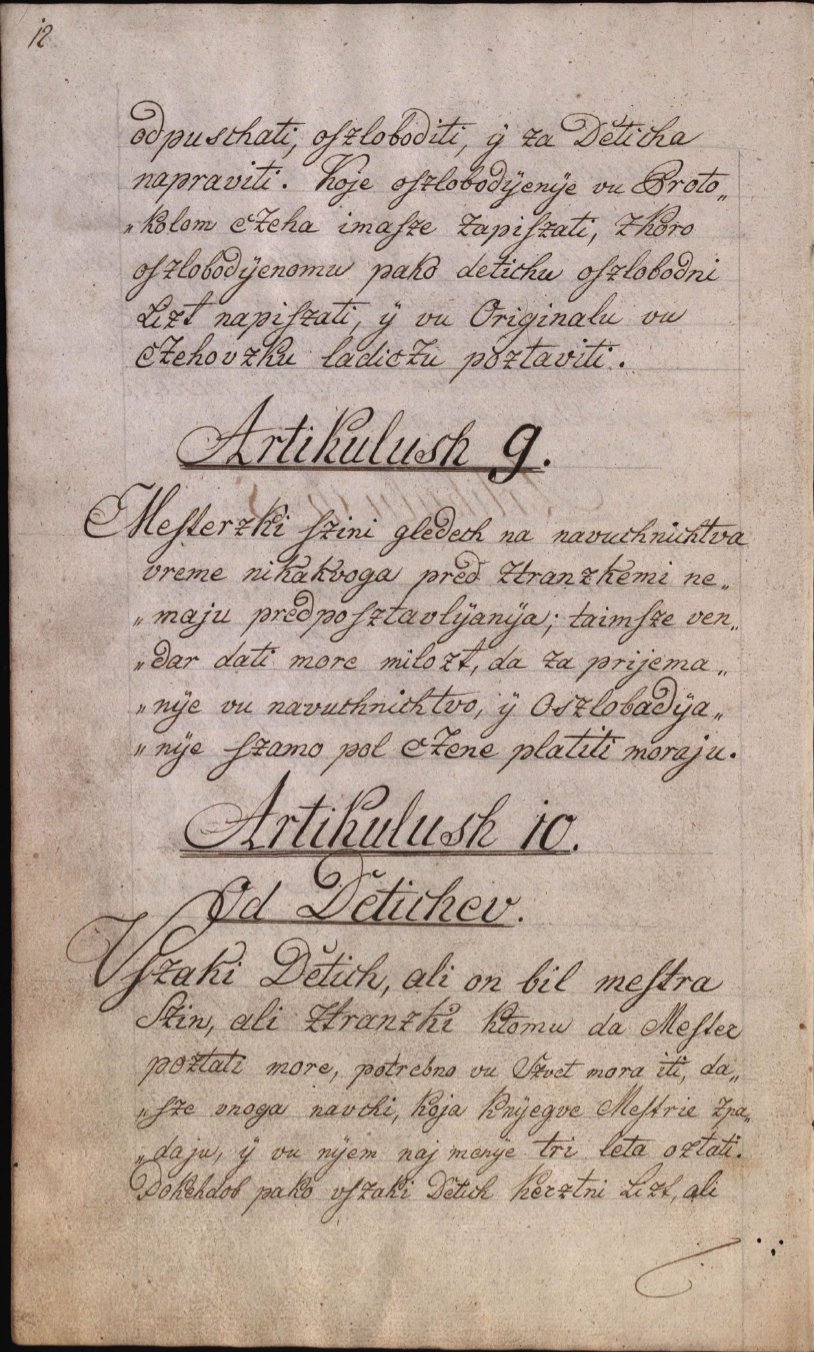 12
odpuschati, oszloboditi, ÿ za Děticha
napraviti. Koje oszlobodÿenÿe vu Proto„
„kolom czeha imasze zapiszati, zkoro
oszlobodÿenomu pako detichu oszlobodni
Lizt napiszati, ÿ vu Originalu vu
czehovzku ladiczu poztaviti.
Artikulush 9.
Mesterzki szini gledech na navuchnichtva
vreme nikakvoga pred ztranzkemi ne„
„maju predposztavlÿanÿa; taimsze ven„
„dar dati more milozt, da za prijema„
„nÿe vu navuchnichtvo, ÿ oszlobadÿa„
„nÿe szamo pol czene platiti moraju.
Artikulush 10.
Od Dětichev.
Vszaki Dětich, ali on bil mestra
Szin, ali ztranzki ktomu da Mester
poztati more, potrebno vu Szvet mora iti, da„
„sze onoga navchi, koja knÿegve Mestrie zpa„
„daju, ÿ vu nÿem naj menÿe tri leta oztati.
Dokehdob pako vszaki Detich kerztni Lizt, ali